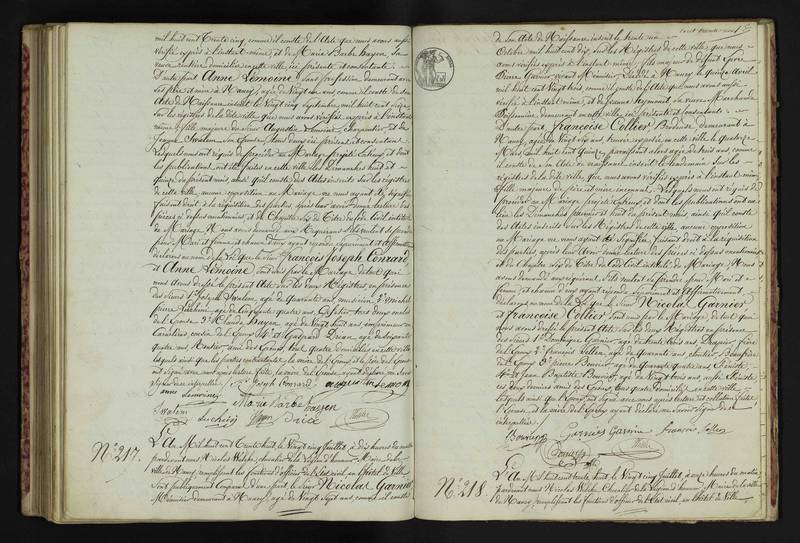 mil huit cent trente cinq, comme il conste de l'Acte que nous avons aussi
vérifié exprès à l'instant même, et de Marie Barbe Hazen, sa
veuve rentière domiciliée en cette ville ici présente et consentante
D'autre part Anne Lemoine, sans profession demeurant avec
ses père et mère à Nancy, âgée de Vingt un ans comme il conste de son
Acte de Naissance inscrit le Vingt cinq Septembre, mil huit cent seize,
sur les registres de la dite ville, que nous avons vérifiés exprès à l'instant
même, fille majeure du Sieur Augustin Lemoine, Charpentier et de
son Epouse, tous deux ici présents et consentants
Lesquels nous ont requis de procéder au Mariage projeté entre eux et dont
les publications ont été faites en cette ville les Dimanches huit et
quinze du présent mois ainsi qu'il conste des Actes inscrits sur les registres
de cette ville, aucune opposition au Mariage ne nous ayant été signifiée
faisant droit à la réquisition des parties, après leur avoir donné lecture des
pièces ci dessus mentionnées et du Chapitre six du Titre du Code Civil intitulé
du Mariage. Nous avons demandé aux Requérants s'ils veulent se prendre
pour Mari et femme et chacun d'eux ayant répondu séparément et affirmativement
déclarons au nom de la Loi que le Sieur François Joseph Conrard,
et Anne Lemoine sont unis par le Mariage de tout quoi
nous avons dressé le présent Acte sur les deux Registres en présence
des Sieurs 1°. Joseph Svalem, âgé de Quarante ans, musicien 2°.
âgé de Cinquante quatre ans, Cafetier tous deux oncles
de l'Epouse 3°. Hazen âgé de Vingt huit ans, imprimeur en
Caractères, cousin de l'Epoux 4°. et Gaspard Drian, âgé de soixante
quatre ans Rentier ami des Epoux, tous quatre domiciliés en cette ville
lesquels ainsi que les parties contractantes, la mère de l'Epoux et le père de l'Epouse
ont signé avec nous après lecture faite, la mère de l'Epouse ayant déclaré ne savoir
signer de ce interpellée
F. Joseph Conrard
anne Lemoine
Marie Barbe hazen
Svalem
Luchini
N°. 217.
L'An Mil huit cent trente huit le Vingt cinq Juillet, à dix heures du matin
pardevant nous Nicolas Welche, chevalier de la Légion d'honneur, Maire de la
ville de Nancy, remplissant les fonctions d'officier de l'état civil, en l'hôtel de Ville
sont publiquement comparus d'une part, le Sieur Nicolas Garnier
Menuisier demeurant à Nancy, âgé de Vingt sept ans, comme il conste
cent trente neuf
de son Acte de Naissance inscrit le trente un
Octobre mil huit cent dix, sur les Registres de cette ville, que nous
avons vérifiés exprès à l'instant même; fils majeur de défunt
Pierre Garnier vivant Menuisier, décédé à Nancy le quinze Avril
mil huit cent Vingt trois, comme il conste de l'acte que nous avons aussi
vérifié à l'instant même, et de Jeanne Aymont, sa veuve Marchande
Poissonnière, demeurant en cette ville, ici présente et consentante
D'autre part, Françoise Collier, Brodeuse, demeurant à
Nancy, âgée de Vingt six ans, trouvée exposée en cette ville le quatorze
Mars mil huit cent Quinze, paraissant alors âgée de trois ans comme
il conste de son Acte de naissance inscrit le lendemain sur les
registres de la dite ville, que nous avons vérifiés exprès à l'instant même
fille majeure de père et mère inconnus. Lesquels nous ont requis de
procéder au Mariage projeté entre eux, et dont les publications ont eu
lieu les Dimanches premier et huit du présent mois ainsi qu'il conste
des Actes inscrits sur les Registres de cette ville, aucune opposition
au Mariage ne nous ayant été signifiée, faisant droit à la réquisition
des parties, après leur avoir donné lecture des pièces ci dessus mentionnées
et du Chapitre six du Titre du Code Civil intitulé du Mariage. Nous
avons demandé aux requérants s'ils veulent se prendre pour Mari et
femme, et chacun d'eux ayant répondu séparément et affirmativement
déclarons au nom de la Loi que le Sieur Nicolas Garnier
et Françoise Collier sont unis par le Mariage, de tout quoi
nous avons dressé le présent Acte sur les deux Registres en présence
des Sieurs 1°. Dominique Garnier âgé de trente trois ans, frère
de l'Epoux 2°. François Collier, âgé de Quarante ans
3°. Pierre Bonnier, âgé de Quarante quatre ans, Ebéniste,
4°. et Jean Baptiste
ces deux derniers amis des Epoux, tous quatre domiciliés en cette ville,
lesquels ainsi que l'Epoux ont signé avec nous après lecture et collation faites
l'Epouse et la mère de l'Epoux ayant déclaré ne savoir signer de ce
interpellées
Garnier Garnier François Collier
N°. 218.
L'An Mil huit cent trente huit, le Vingt cinq Juillet, à onze heures du matin,
pardevant nous Nicolas Welche, Chevalier de la Légion d'honneur, Maire de la ville
de Nancy, remplissant les fonctions d'officier de l'Etat civil, en l'hôtel de Ville